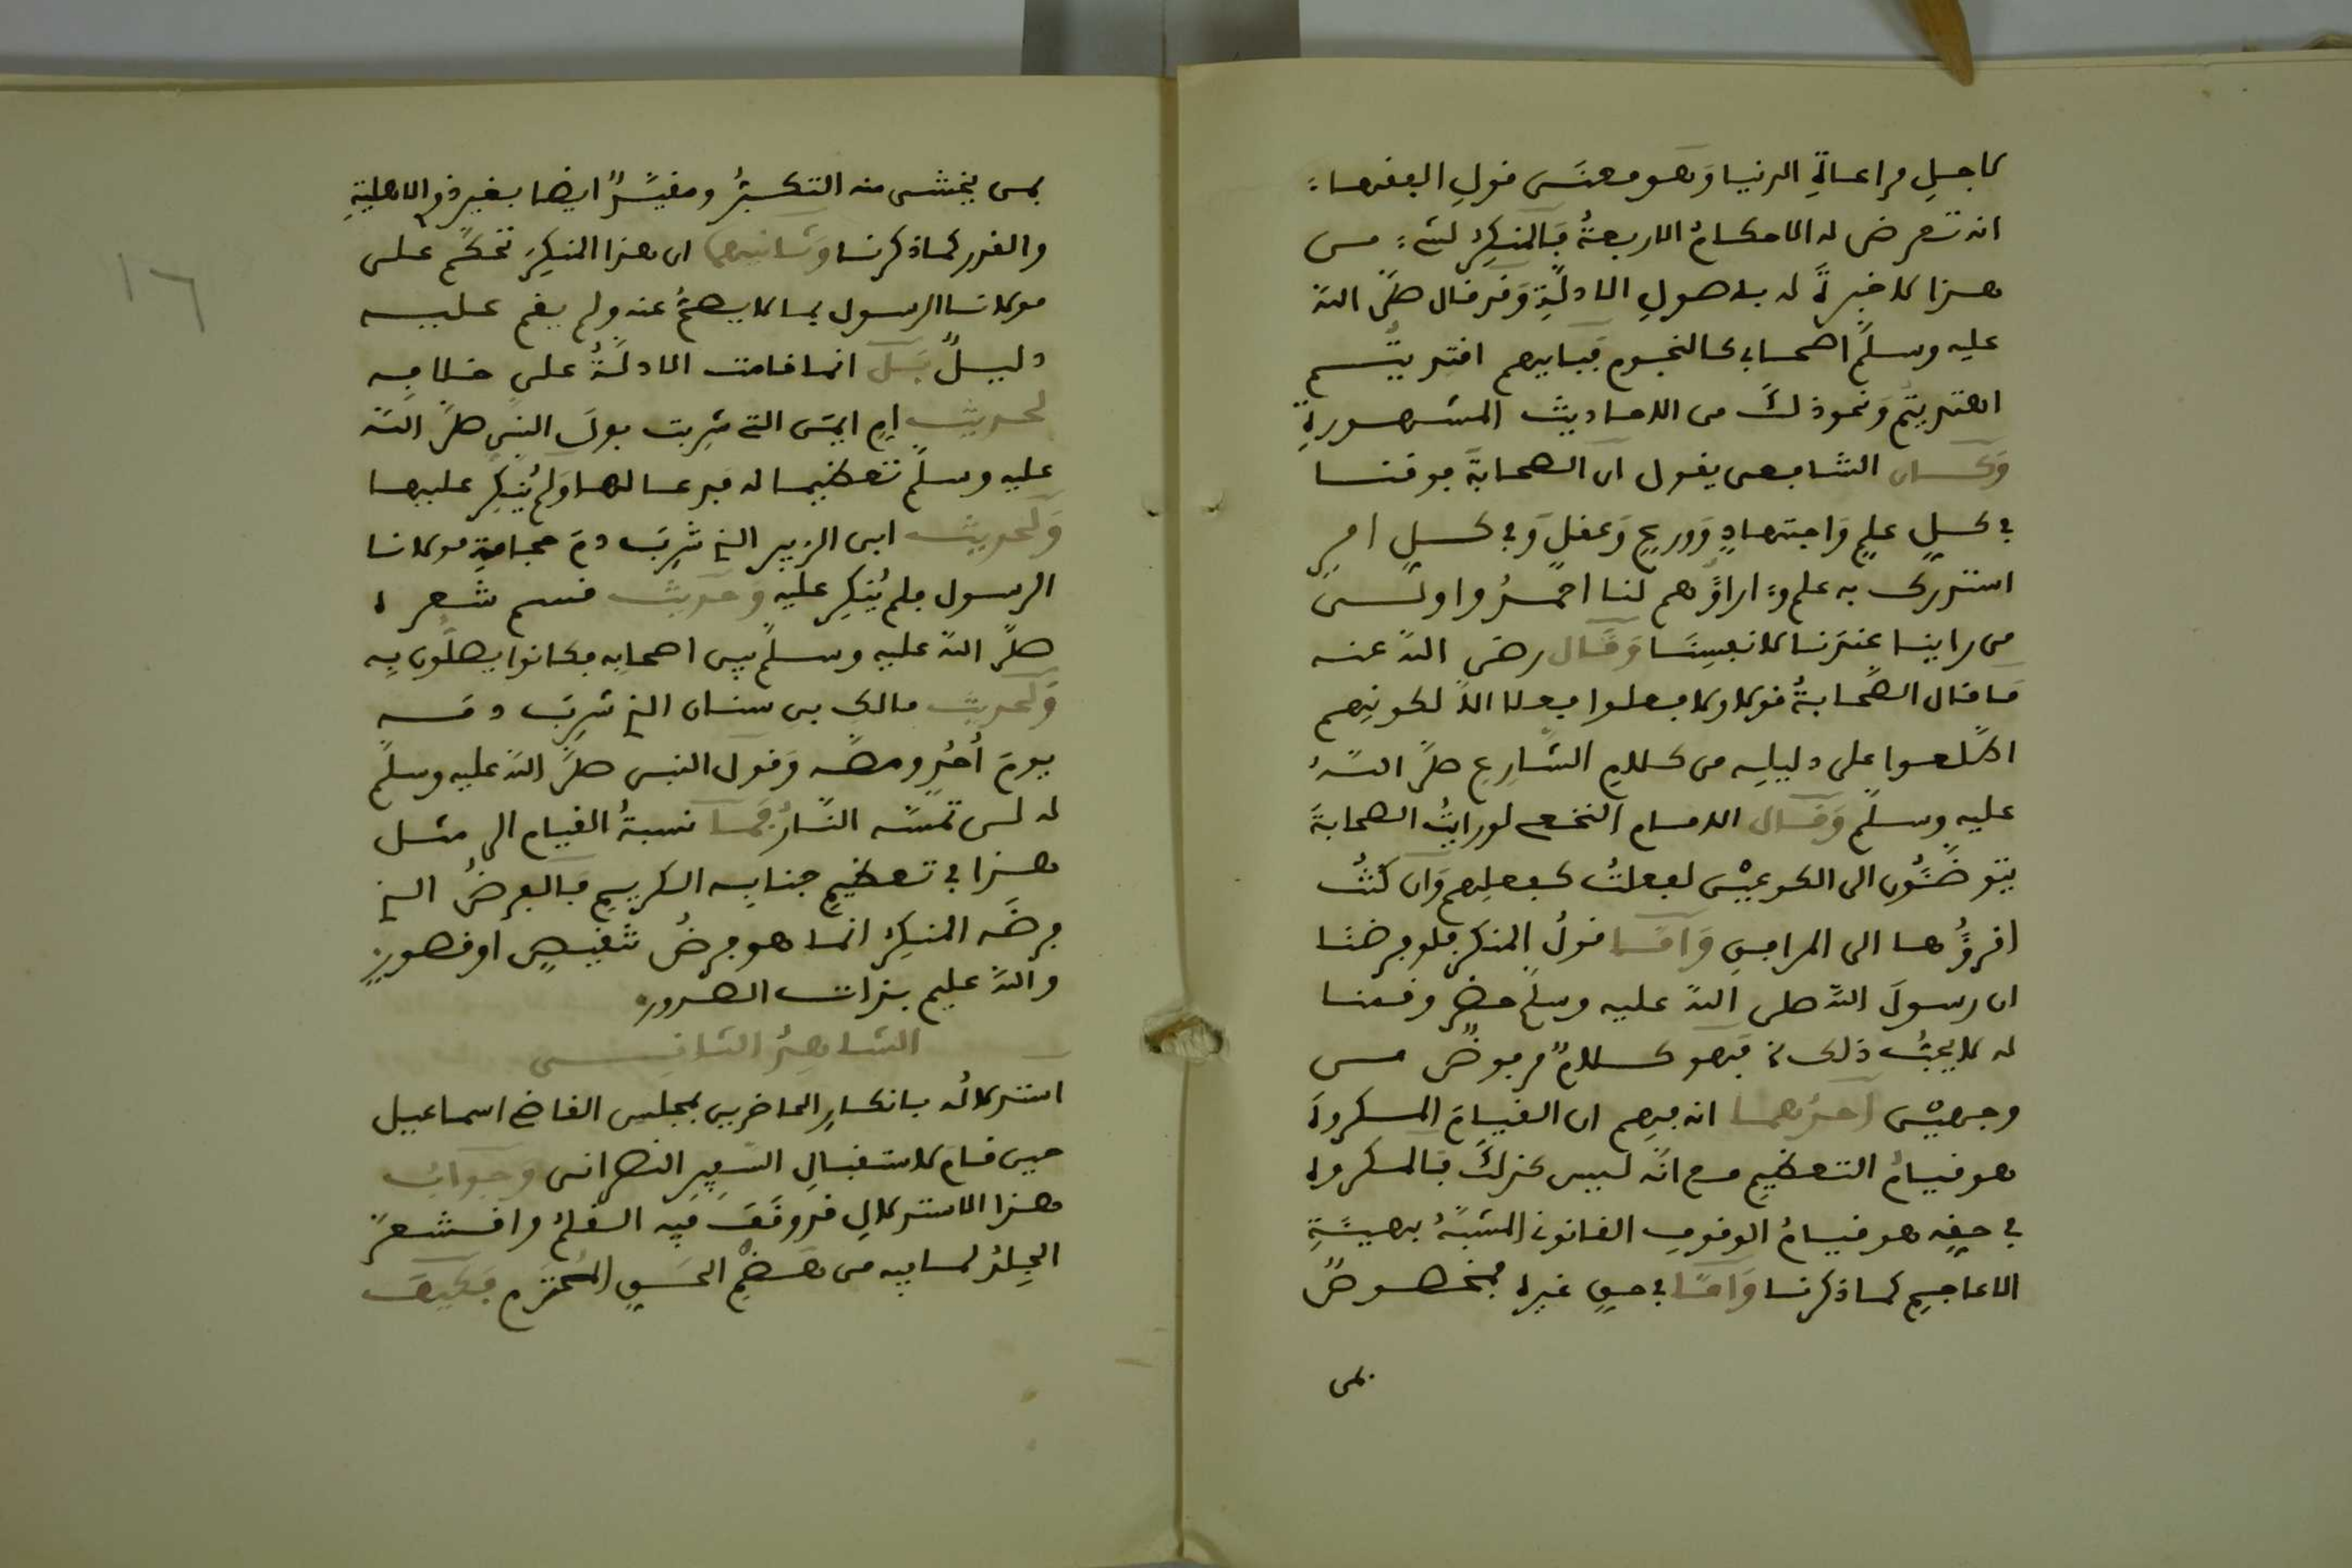 لاجل مراعاة الدنيا وهو معنى قول الفقهاء
انه تعرض له الاحكام الاربعة فالمنكر لشيء من
هذا لا خبرة له باصول الادلة وقد قال صلى الله
عليه وسلم اصحابي كالنجوم فبايهم اقتديتم
اهتديتم ونحو ذلك من الاحاديث المشهورة
وكان الشافعي يقول ان الصحابة فوقنا
في كل علم واجتهاد وورع وعقل وفي كل امر
استدرك به علم وءاراؤهم لنا احمد واولى
من راينا عندنا لانفسنا وقال رضي الله عنه
ما قال الصحابة قولا ولا فعلوا فعلا الا لكونهم
اطلعوا على دليله من كلام الشارع صلى الله
عليه وسلم وقال الامام النخعي لو رايت الصحابة
يتوضئون الى الكوعين لفعلت كفعلهم وان كنت
اقرؤها الى المرافق واما قول المنكر فلو فرضنا
ان رسول الله صلى الله عليه وسلم حضر وقمنا
له لا يحب ذلك فهو كلام مرفوض من
وجهين احدهما انه فهم ان القيام المكروه
هو قيام التعظيم مع انه ليس كذلك فالمكروه
في حقه هو قيام الوقوف القانوني المشبه بهيئة
الاعاجم كما ذكرنا واما في حق غيره فمخصوص
بمن
١٦
بمن يخشى منه التكبر ومقيد ايضا بغير ذوي الاهلية
والقدر كما ذكرنا وثانيهما ان هذا المنكر تحكم على
مولانا الرسول بما لا يصح عنه ولم يقم عليه
دليل بل انما قامت الادلة على خلافه
لحديث ام ايمن التي شربت بول النبي صلى الله
عليه وسلم تعظيما له فدعا لها ولم ينكر عليها
ولحديث ابن الزبير الذي شرب دم حجامة مولانا
الرسول فلم ينكر عليه وحديث قسم شعره
صلى الله عليه وسلم بين اصحابه فكانوا يصلون به
ولحديث مالك بن سنان الذي شرب دمه
يوم أحد ومصه وقول النبي صلى الله عليه وسلم
له لن تمسه النار فما نسبة القيام الى مثل
هذا في تعظيم جنابه الكريم فالفرض الذي
فرضه المنكر انما هو فرض تنقيص او قصور
والله عليم بذات الصدور
الشاهد الثاني
استدلاله بانكار الحاضرين بمجلس القاضي اسماعيل
حين قام لاستقبال السفير النصراني وجواب
هذا الاستدلال قد وقف فيه القلم واقشعر
الجلد لما فيه من هضم الحق المحترم فكيف